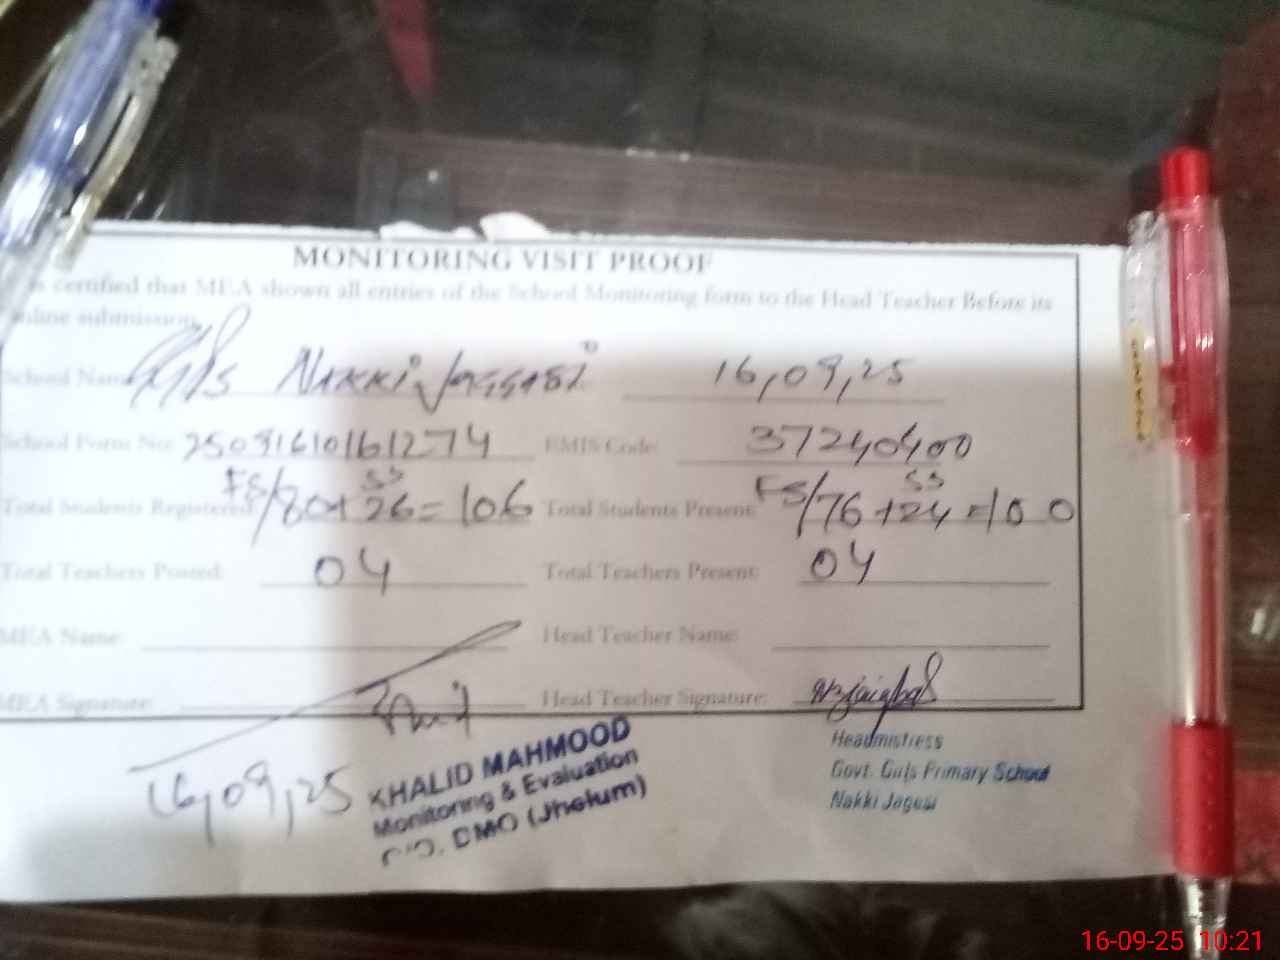 MONITORING VISIT PROOF
is certified that MEA shown all entries of the School Monitoring form to the Head Teacher Before its
online submission.
School Name Nakki 16,09,25
School Form No: 25091610161274 EMIS Code: 37240400
Total Students Registered: FS/80+ SS 26=106 Total Students Present: FS/76+ SS 24=100
Total Teachers Posted: 04 Total Teachers Present: 04
MEA Name: Head Teacher Name:
MEA Signature: Head Teacher Signature:
16,09,25
KHALID MAHMOOD
Monitoring & Evaluation
DMO (Jhelum)
Headmistress
Govt. Girls Primary School
Nakki Jagesi
16-09-25 10:21